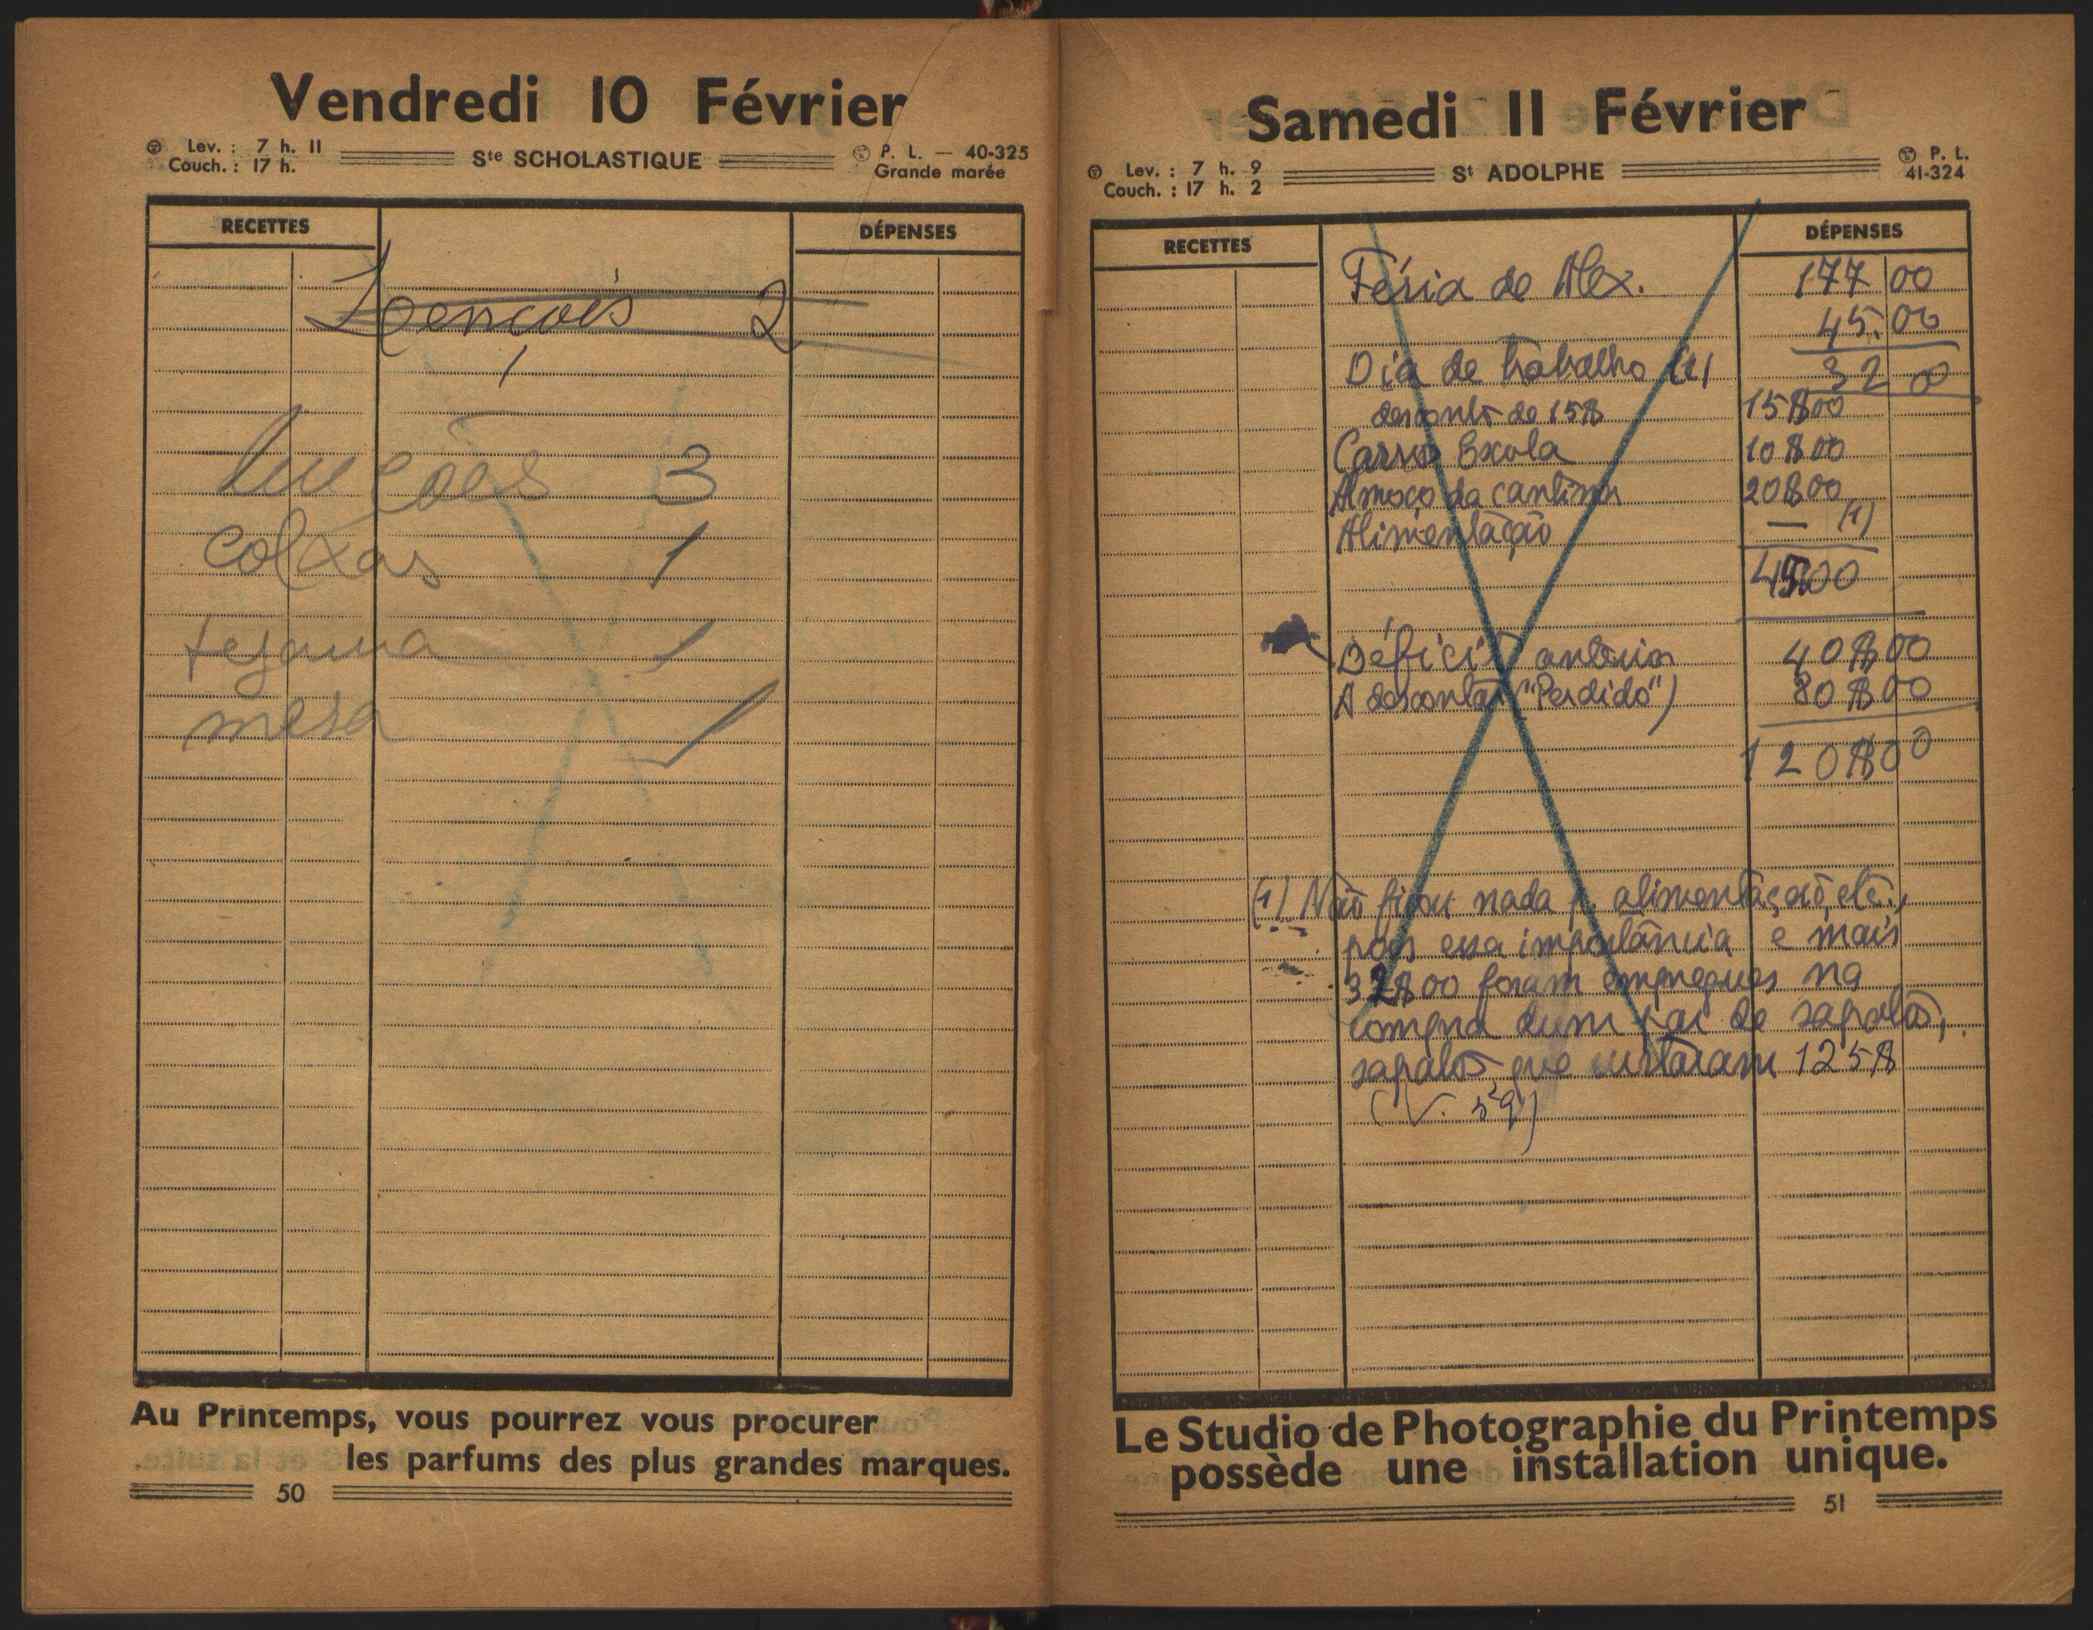 Vendredi 10 Février
Lev. : 7 h. 11
Couch. : 17 h.
Ste SCHOLASTIQUE
P. L. — 40-325
Grande marée
RECETTES
DÉPENSES
Lencois 2
1
3
colxas 1
1
mesa 1
Au Printemps, vous pourrez vous procurer
les parfums des plus grandes marques.
50
Samedi 11 Février
Lev. : 7 h. 9
Couch. : 17 h. 2
St ADOLPHE
P. L.
41-324
RECETTES
DÉPENSES
Féria de Alex. 177 00
45.00
Dia de trabalho (1) 32 00
desconto de 15$ 15$00
Carro Escola 10$00
Almoço da cantina 20$00
Alimentação — (1)
4500
Déficit anterior 40$00
A descontar ("Perdido") 80$00
120$00
(1) Não ficou nada p. alimentação, etc.,
pois essa importância e mais
32$00 foram empregues na
compra dum par de sapatos,
sapatos que custaram 125$
(V.
Le Studio de Photographie du Printemps
possède une installation unique.
51